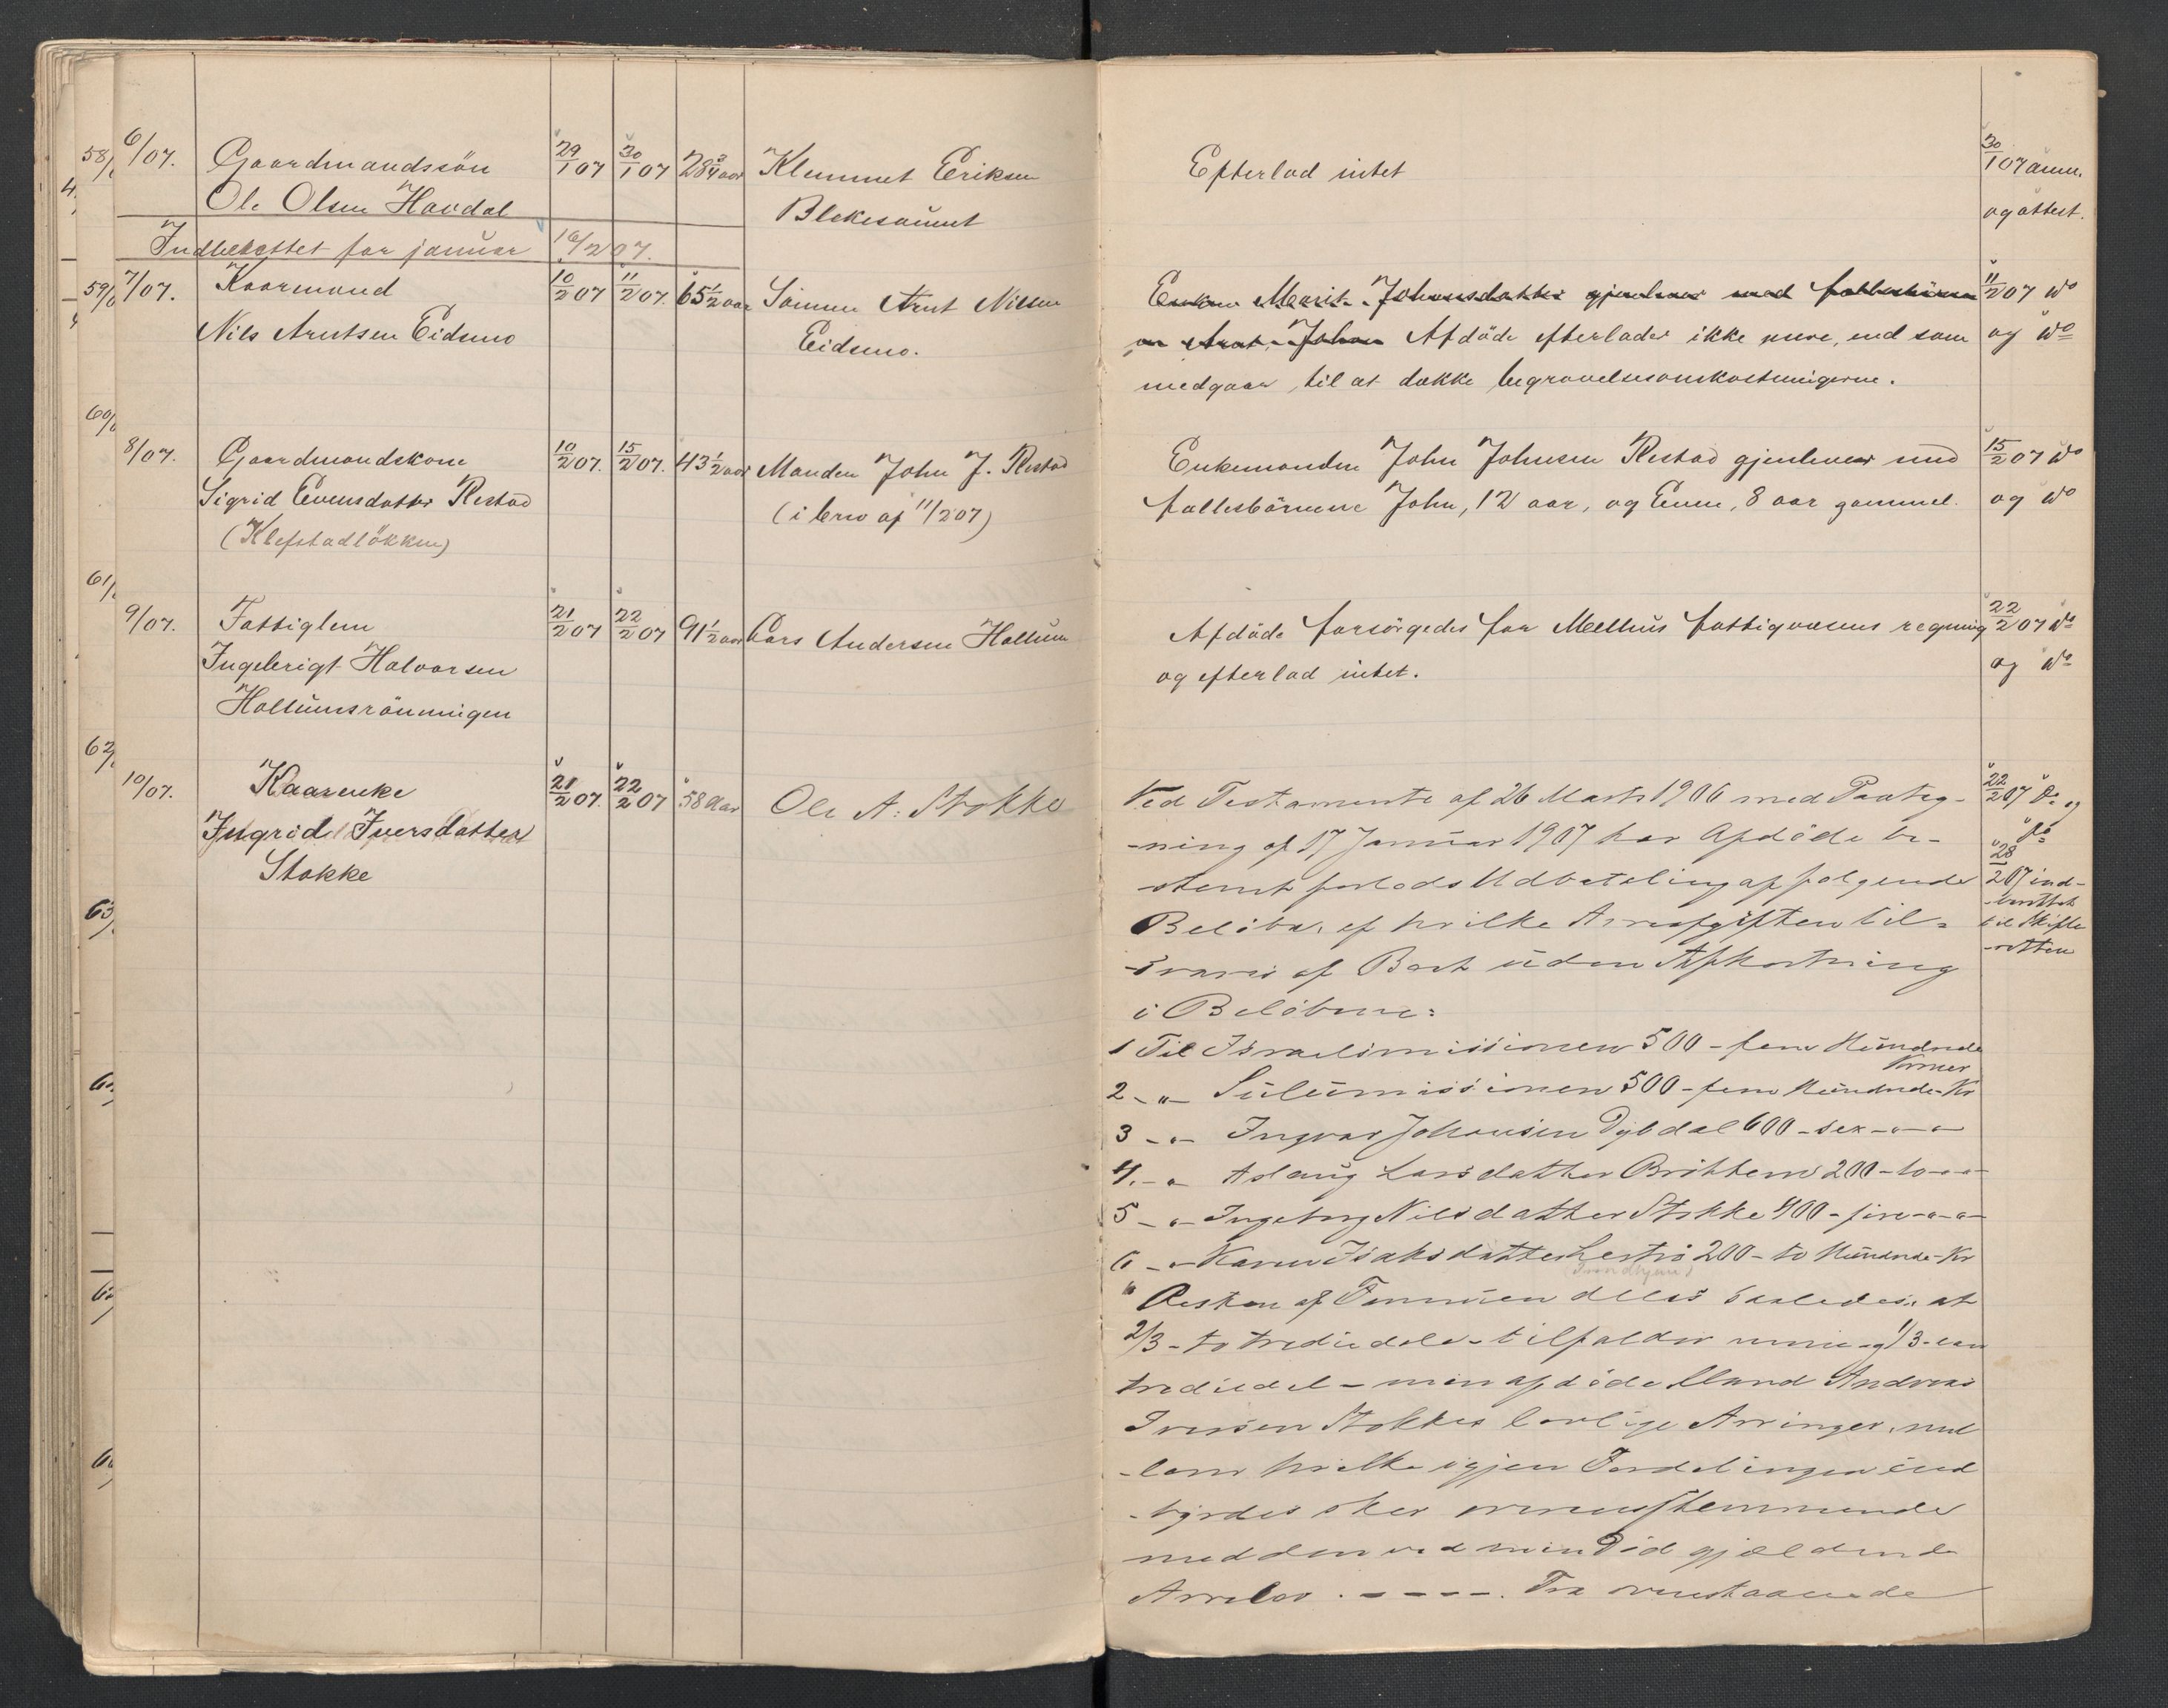 58/
6/07.
Gaardmandssön
Ole Olsen Havdal
29/1 07
30/1 07
28 3/4 aar
Klemmet Eriksen
Blekesaunet
Efterlod intet
30/1 07 anm.
og attest.
Indberettet for januar 16/2 07.
59/
7/07.
Kaarmand
Nils Arntsen Eidsmo
10/2 07
11/2 07.
65 1/2 aar
Sönnen Arnt Nilsen
Eidsmo.
Enken Marit Johnsdatter gjenlever med fællesbörnene
Arnt, Johan Afdöde efterlader ikke mere, end som
medgaar til at dække begravelsesomkostningerne.
11/2 07 do
og do
60/
8/07.
Gaardmandskone
Sigrid Evensdatter Restad
(Klefstadlökken)
10/2 07.
15/2 07.
43 1/2 aar
Manden John J. Restad
(i brev af 11/2 07)
Enkemanden John Johnsen Restad gjenlever med
fællesbörnene John, 12 aar, og Even, 8 aar gammel.
15/2 07 do
og do
61/
9/07.
Fattiglem
Ingebrigt Halvorsen
Hollumsrönningen
21/2 07
22/2 07
91 1/2 aar
Lars Andersen Hollum
Afdöde forsörgedes for Melhus fattigvæsens regning
og efterlod intet.
22/2 07 do
og do
62/
10/07.
Kaarenke
Ingrid Iversdatter
Stokke
21/2 07.
22/2 07
58 Aar
Ole A. Stokke
Ved Testamente af 26 Marts 1906 med Paateg-
-ning af 17 Januar 1907 har Afdöde be-
-stemt forlods Udbetaling af følgende
Beløbe, af hvilke Arveafgiften til-
-svares af Boet uden Afkortning
i Beløbene:
22/2 07 Do og
Do
28/2 07 ind-
-berettet
til Skifte
-retten
1 Til Israelsmissionen 500 - fem Hundrede
Kroner
2 - " - Sulumissionen 500 - fem Hundrede Kr
3 - " - Ingvar Johansen Dybdal 600 - sex - " - "
4. - " Aslaug Larsdatter Brøttem 200 - to - " - "
5 - " - Ingeborg Nilsdatter Stokke 400 - fire - " - "
6 - " - Karen Isaksdatter Lestrø 200 - to Hundrede Kr
(Trondhjem)
" Resten af Formuen deles saaledes, at
2/3 - to trediedele - tilfalder mine og 1/3 - en
trediedel - min afdöde Mand Andreas
Iversen Stokkes lovlige Arvinger, mel
-lem hvilke igjen Fordelingen ind
-byrdes sker overensstemmende
med den ved min Död gjældende
Arvelov. - - - - . Fra ovenstaaende
63/